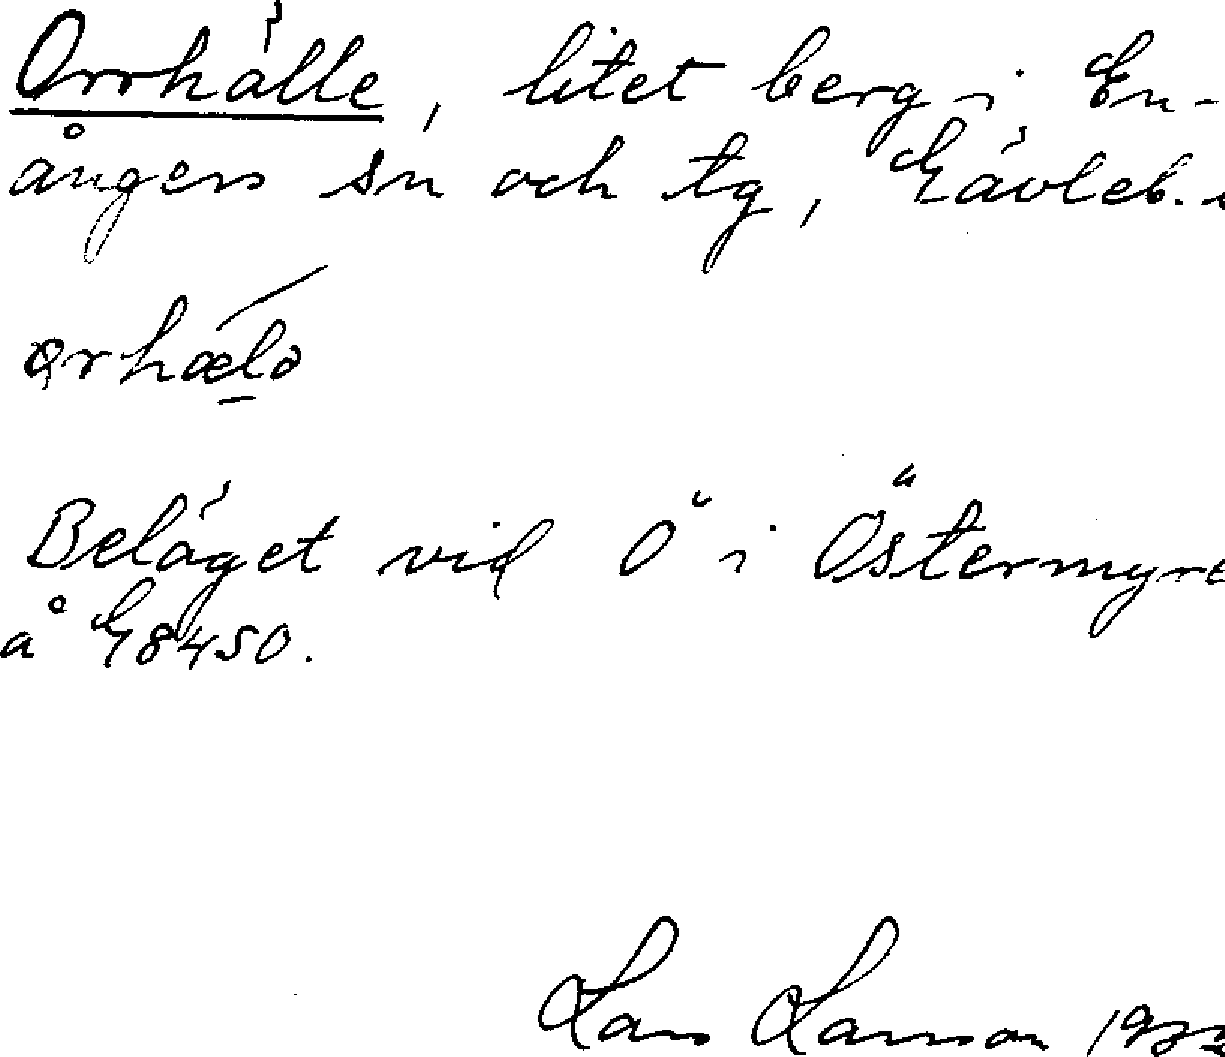 Orrhälle, litet berg i En-
ångers sn och tg, Gävleb.
orhælə
Beläget vid Ö i Östermyre
å G8450.
Lars Larsson